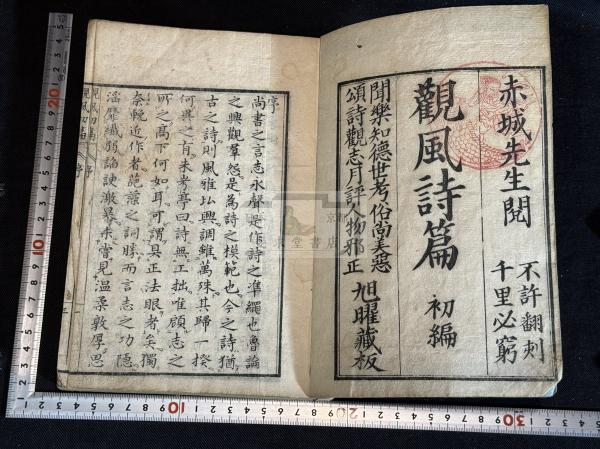 赤城先生閲
不許翻刻
千里必窮
觀風詩篇
初編
聞樂知德世考俗尚美惡
頌詩觀志月評人物邪正
旭曜藏板
序
尚書之言志永聲是作詩之準繩也魯論
之興觀羣怨是為詩之模範也今之詩猶
古之詩則風雅比興調雖萬殊其歸一揆
何異之有朱考亭曰詩無工拙唯顧志之
所之高下何如耳可謂具正法眼者矣獨
奈輓近作者葩藻之詞勝而言志之功隱
淫靡纖弱諂諛激暴未嘗見温柔敦厚思
觀風初篇
序